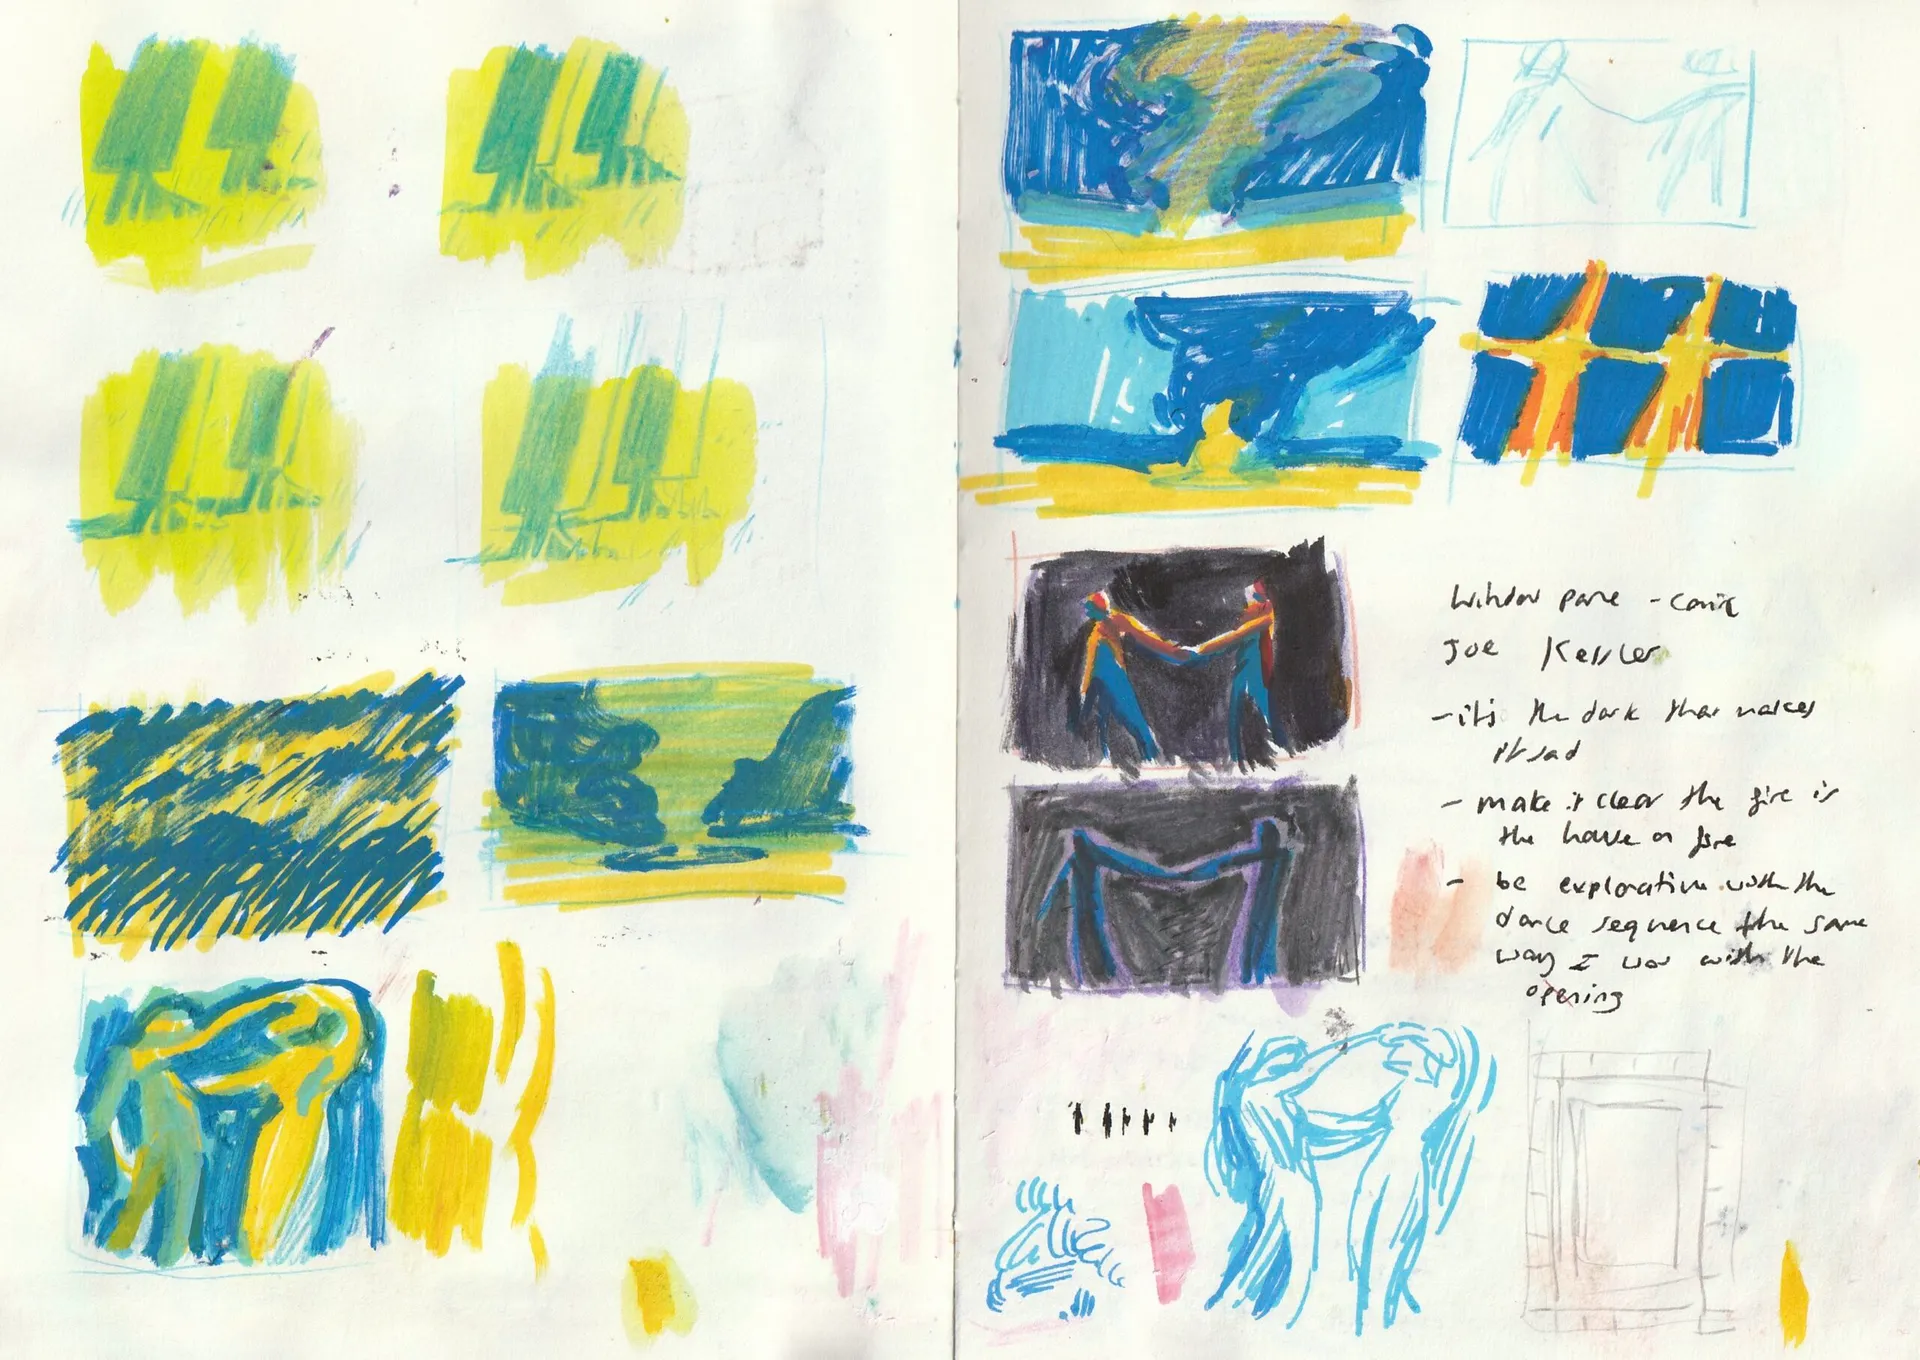 Window pane - comic
Joe Kessler
- it's the dark that makes
it sad
- make it clear the fire is
the house on fire
- be explorative with the
dance sequence the same
way I was with the
opening